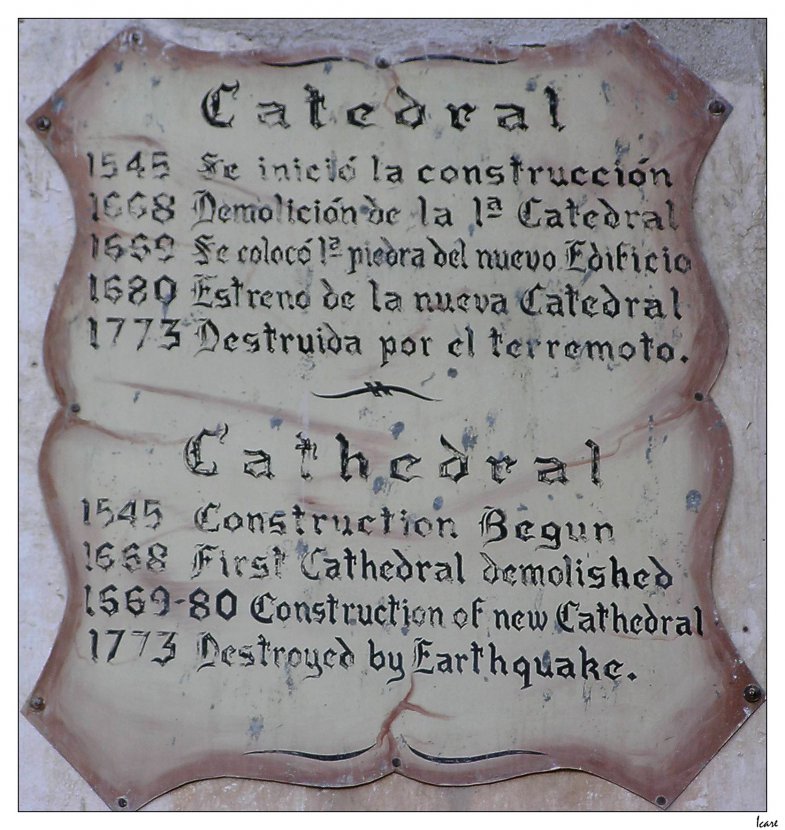 Catedral
1545 Se inició la construcción
1668 Demolición de la 1ª Catedral
1669 Se colocó 1ª piedra del nuevo Edificio
1680 Estreno de la nueva Catedral
1773 Destruida por el terremoto.
Cathedral
1545 Construction Begun
1668 First Cathedral demolished
1669-80 Construction of new Cathedral
1773 Destroyed by Earthquake.
Icare